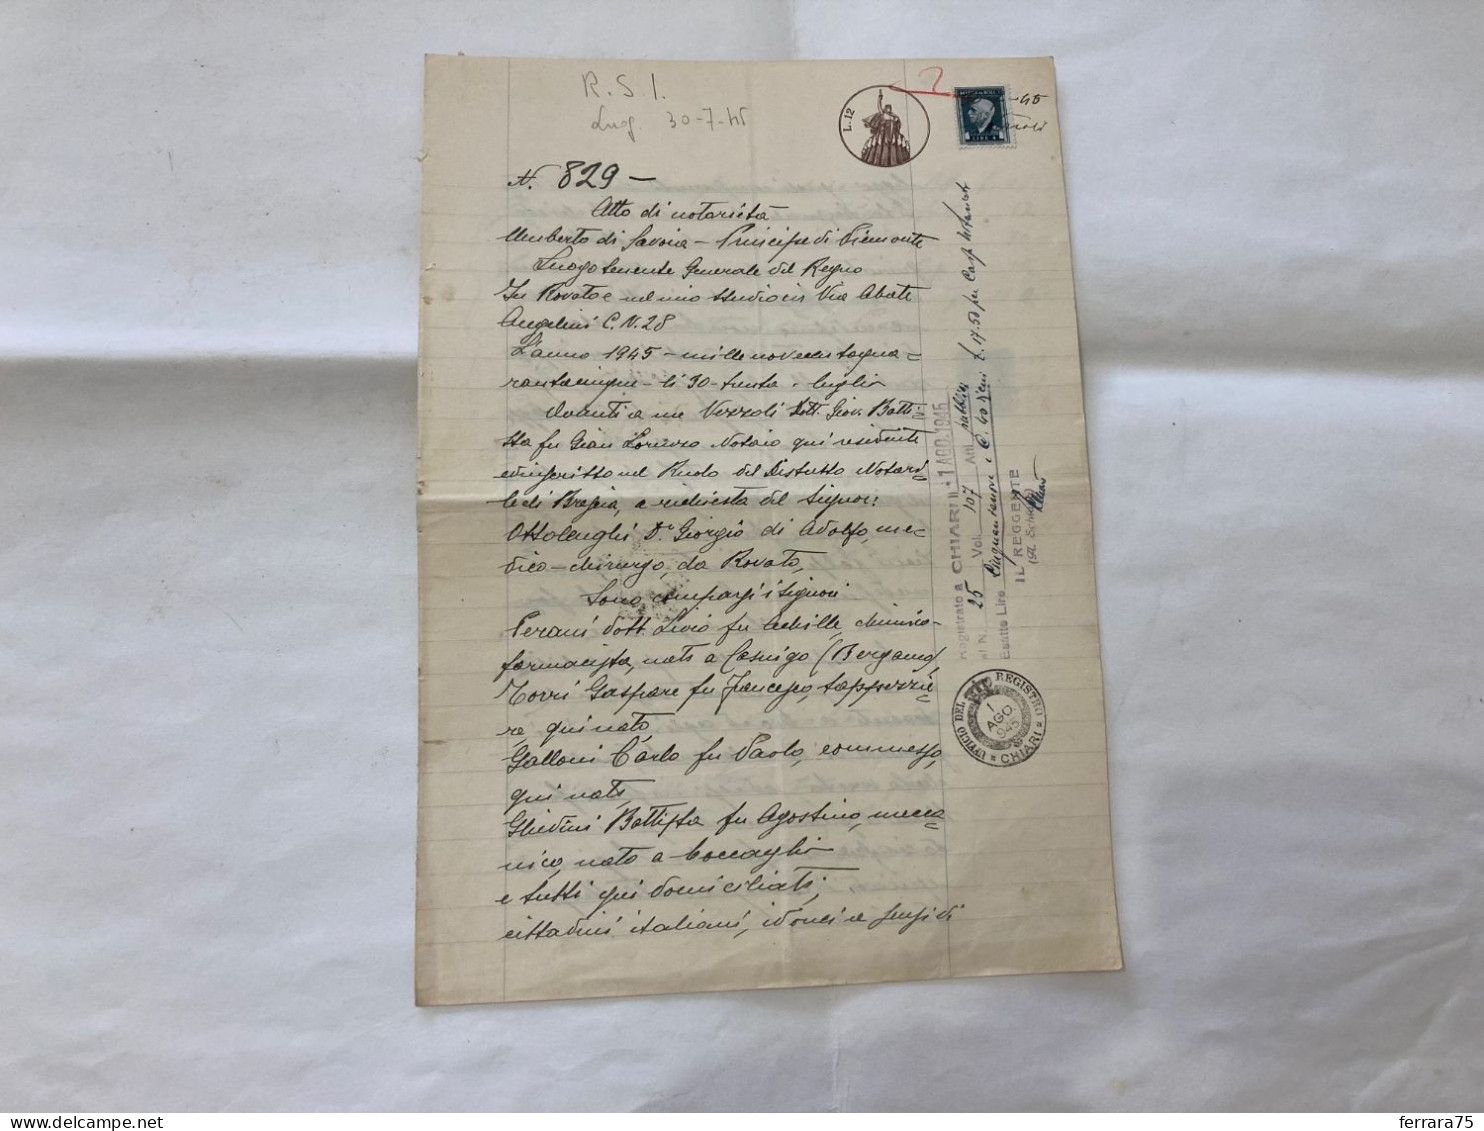 R.S.I.
Luog. 30-7-45
L.12
2
-45
N. 829 -
Atto di notorietà
Umberto di Savoia - Principe di Piemonte
Luogotenente Generale del Regno
In Rovato e nel mio studio in Via Abate
Angelini C.N. 28
L'anno 1945 - millenovecentoqua=
rantacinque - li 30 - trenta - luglio
Avanti a me Vezzoli Dott. Giov. Batti=
sta fu Gian Lorenzo Notaio qui residente
ed inscritto nel Ruolo del Distretto Notari=
le di Brescia, a richiesta del Signor:
Ottolenghi Dr. Giorgio di Adolfo, me=
dico-chirurgo, da Rovato,
Sono comparsi i signori
Perani Dott. Livio fu Achille, chimico-
farmacista, nato a Casnigo (Bergamo),
Torri Gaspare fu Francesco, tappezzie=
re, qui nato,
Galloni Carlo fu Paolo, commesso,
qui nato,
Ghidini Battista fu Agostino, mecca=
nico, nato a Coccaglio
e tutti qui domiciliati,
cittadini italiani, idonei a sensi di
Registrato a CHIARI li - 1 AGO. 1945
al N. 25 Vol. 107 Atti pubblici
Esatte Lire Cinquantanove e C. 60 L. 17.50 per
IL REGGENTE
UFFICIO DEL REGISTRO
1 AGO. 1945
CHIARI
delcampe.net
ferrara75